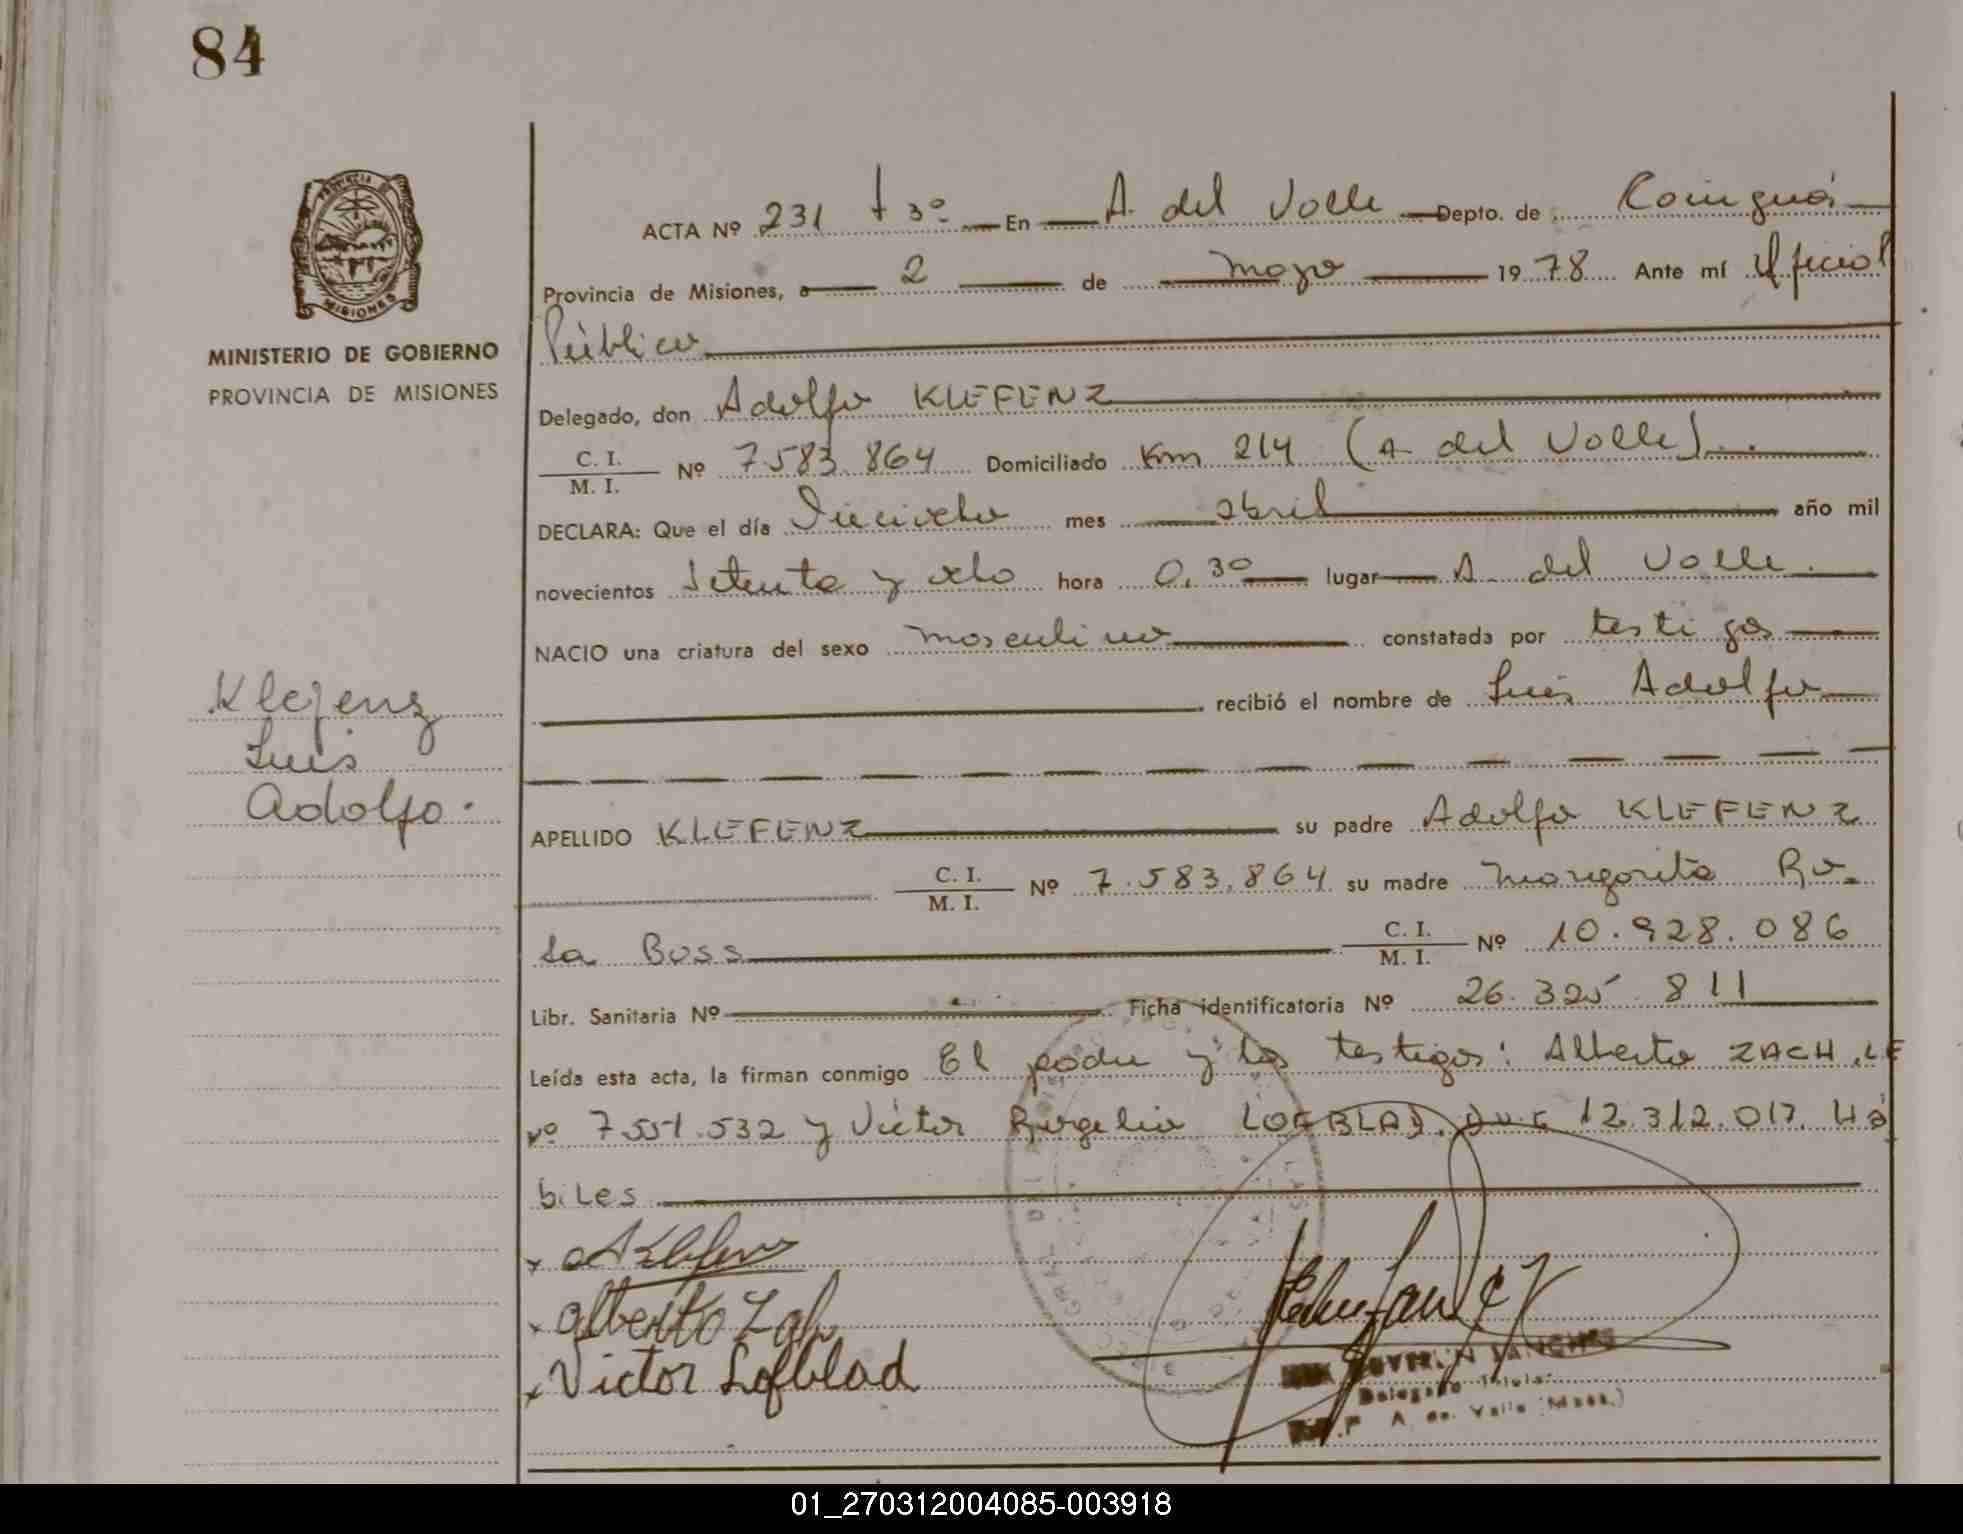 84
ACTA Nº 231 t 3º En A. del Valle Depto. de Cainguás
Provincia de Misiones, a 2 de mayo 1978 Ante mí Oficial
Público
MINISTERIO DE GOBIERNO
PROVINCIA DE MISIONES
Delegado, don Adolfo KLEFENZ
C. I. / M. I. Nº 7583.864 Domiciliado Km 214 (A del Valle)
DECLARA: Que el día Dieciocho mes abril año mil
novecientos Setenta y ocho hora 0,30 lugar A. del Valle.
NACIO una criatura del sexo masculino constatada por testigos
recibió el nombre de Luis Adolfo
Klefenz
Luis
Adolfo.
APELLIDO KLEFENZ su padre Adolfo KLEFENZ
C. I. / M. I. Nº 7.583.864 su madre Margarita Ro-
sa Boss C. I. / M. I. Nº 10.928.086
Libr. Sanitaria Nº Ficha identificatoria Nº 26.325.811
Leída esta acta, la firman conmigo El padre y los testigos: Alberto ZACH, LE
Nº 7.551.532 y Víctor Rogelio LOFBLAD, DNI 12.312.017. Há
biles
Alberto Zach
Victor Lofblad
SANCHEZ
Delegado Titular
A. del Valle (Mnes.)
01_270312004085-003918